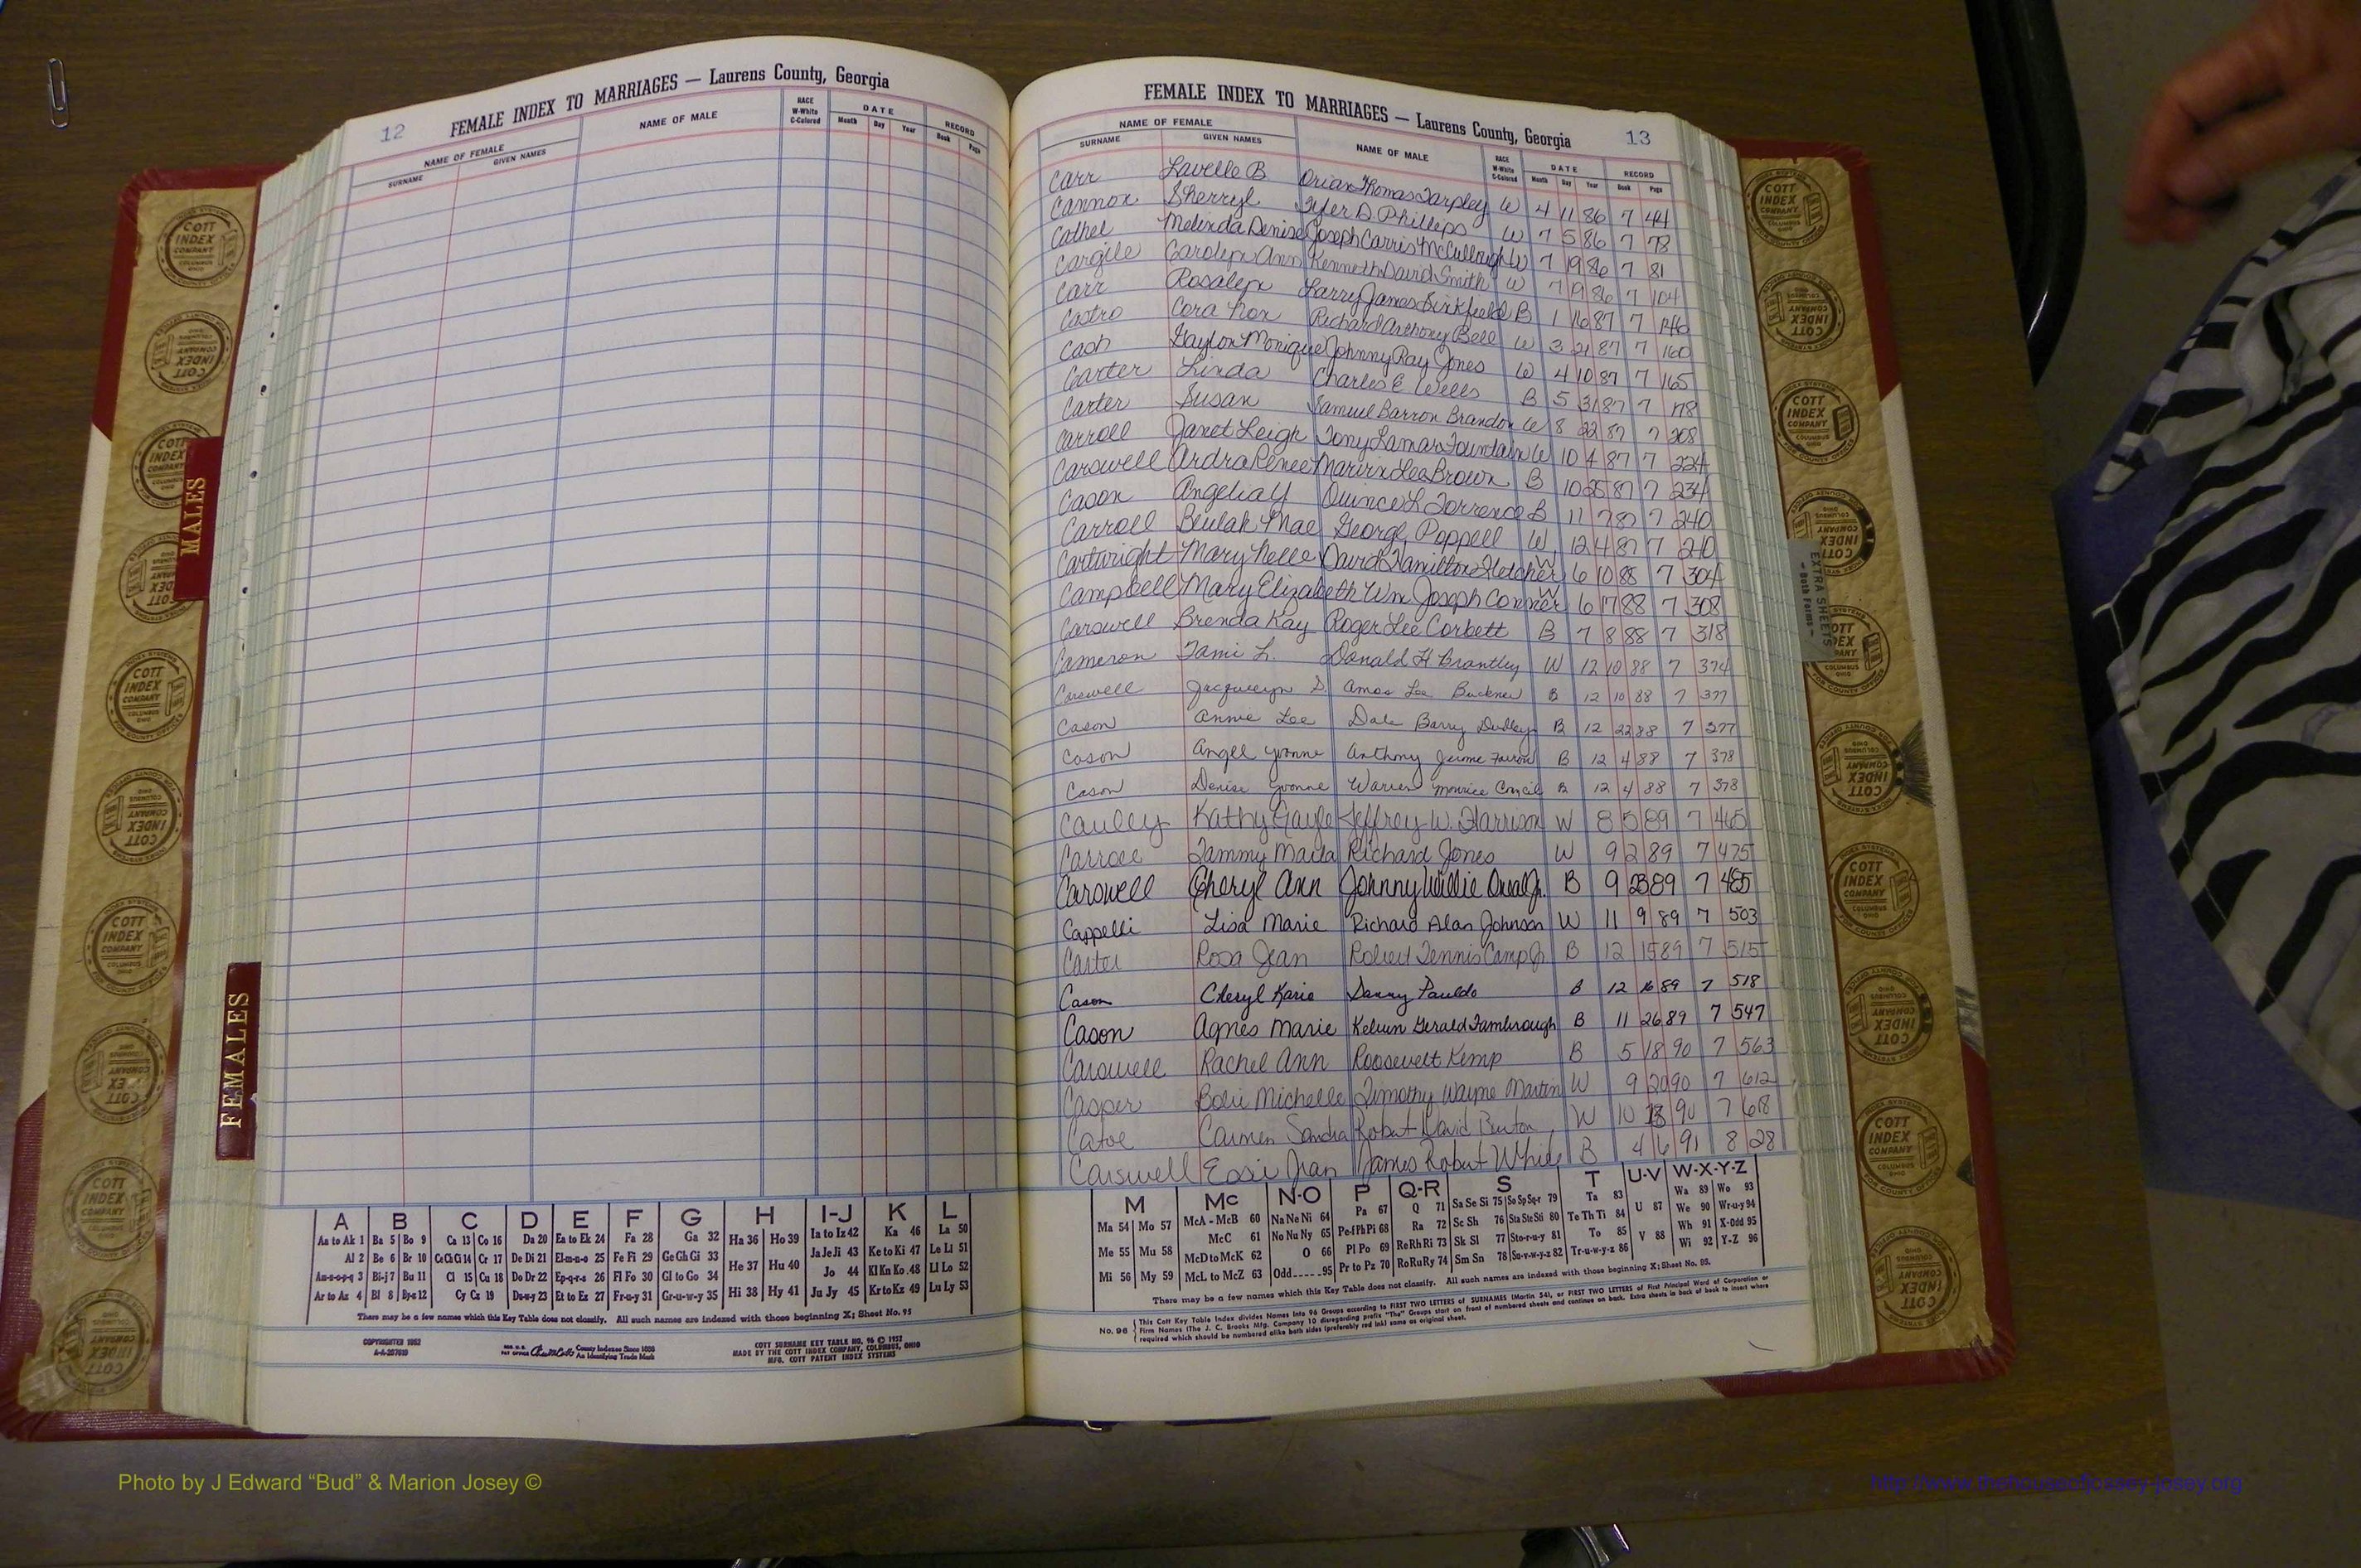 12 FEMALE INDEX TO MARRIAGES — Laurens County, Georgia
NAME OF FEMALE NAME OF MALE RACE W-White C-Colored DATE RECORD
SURNAME GIVEN NAMES Month Day Year Book Page
MALES
FEMALES
A B C D E F G H I-J K L
Aa to Ak 1 Ba 5 Bo 9 Ca 13 Co 16 Da 20 Ea to Ek 24 Fa 28 Ga 32 Ha 36 Ho 39 Ia to Iz 42 Ka 46 La 50
Al 2 Be 6 Br 10 Ce Ch Ci 14 Cr 17 De Di 21 El-m-n-o 25 Fe Fi 29 Ge Gh Gi 33 He 37 Hu 40 Ja Je Ji 43 Ke to Ki 47 Le Li 51
Am-n-o-p-q 3 Bi-j 7 Bu 11 Cl 15 Cu 18 Do Dr 22 Ep-q-r-s 26 Fl Fo 30 Gl to Go 34 Hi 38 Hy 41 Jo 44 Kl Kn Ko 48 Ll Lo 52
Ar to Az 4 Bl 8 By-z 12 Cy Cz 19 Du-w-y 23 Et to Ez 27 Fr-u-y 31 Gr-u-w-y 35 Ju Jy 45 Kr to Kz 49 Lu Ly 53
There may be a few names which this Key Table does not classify. All such names are indexed with those beginning X; Sheet No. 95
COPYRIGHTED 1952
County Indexes Since 1888
An Identifying Trade Mark
COTT SURNAME KEY TABLE NO. 96 © 1957
MADE BY THE COTT INDEX COMPANY, COLUMBUS, OHIO
MFG. COTT PATENT INDEX SYSTEMS
FEMALE INDEX TO MARRIAGES — Laurens County, Georgia 13
NAME OF FEMALE NAME OF MALE RACE W-White C-Colored DATE RECORD
SURNAME GIVEN NAMES Month Day Year Book Page
Carr Lavelle B Orian Thomas Tarpley W 4 11 86 7 44
Cannon Sherryl Tyler D Phillips W 7 5 86 7 78
Cathel Melinda Denise Joseph Carris McCullough W 7 19 86 7 81
Cargile Carolyn Ann Kenneth David Smith W 7 19 86 7 104
Carr Rosalyn Larry James B 1 16 87 7 146
Castro Cora Nox Richard Anthony Bell W 3 21 87 7 160
Cash Gaylon Monique Johnny Ray Jones W 4 10 87 7 165
Carter Linda Charles E Wells B 5 31 87 7 178
Carter Susan Samuel Barron Brandon W 8 22 87 7 208
Carroll Janet Leigh Tony Lamar Fountain W 10 4 87 7 224
Carswell Ardra Renee Marvin Lee Brown B 10 25 87 7 234
Cason Angelia Y Quince L Torrence B 11 7 87 7 240
Carroll Beulah Mae George Poppell W 12 4 87 7 240
Cartwright Mary Nelle David Hamilton Fletcher W 6 10 88 7 304
Campbell Mary Elizabeth Wm. Joseph Conner W 6 17 88 7 308
Carswell Brenda Kay Roger Lee Corbett B 7 8 88 7 318
Cameron Tami L. Donald H Brantley W 12 10 88 7 374
Carswell Jacquelyn D Amos Lee Buckner B 12 10 88 7 377
Cason Annie Lee Dale Barry Dudley B 12 22 88 7 377
Cason Angel Yvonne Anthony Jerome B 12 4 88 7 378
Cason Denise Yvonne Warren Mourice Council B 12 4 88 7 378
Cauley Kathy Gayle Jeffrey W. Harrison W 8 5 89 7 465
Carroll Tammy Maria Richard Jones W 9 2 89 7 475
Carswell Cheryl Ann Johnny Willie Oneal Jr. B 9 23 89 7 485
Cappelli Lisa Marie Richard Alan Johnson W 11 9 89 7 503
Carter Rosa Jean Robert Tennis Camp Jr B 12 15 89 7 515
Cason Cheryl Karie Danny Pauldo B 12 16 89 7 518
Cason Agnes Marie Kelvin Gerald Fambrough B 11 26 89 7 547
Carswell Rachel Ann Roosevelt Kemp B 5 18 90 7 563
Casper Bobie Michelle Timothy Wayne Martin W 9 20 90 7 612
Catoe Carmen Sandra Robert David Burton W 10 13 90 7 618
Carswell Essie Jean James Robert White B 4 6 91 8 28
EXTRA SHEETS
— Both Forms —
M Mc N-O P Q-R S T U-V W-X-Y-Z
Ma 54 Mo 57 McA - McB 60 Na Ne Ni 64 Pa 67 Q 71 Sa Se Si 75 So Sp Sq-r 79 Ta 83 U 87 Wa 89 Wo 93
Me 55 Mu 58 McC 61 No Nu Ny 65 Pe-f Ph Pi 68 Ra 72 Sc Sh 76 Sta Ste Sti 80 Te Th Ti 84 We 90 Wr-u-y 94
Mi 56 My 59 McD to McK 62 O 66 Pl Po 69 Re Rh Ri 73 Sk Sl 77 Sto-r-u-y 81 To 85 V 88 Wh 91 X-Odd 95
McL to McZ 63 Odd-----95 Pr to Pz 70 Ro Ru Ry 74 Sm Sn 78 Su-v-w-y-z 82 Tr-u-w-y-z 86 Wi 92 Y-Z 96
There may be a few names which this Key Table does not classify. All such names are indexed with those beginning X; Sheet No. 95.
No. 96 This Cott Key Table Index divides Names into 96 Groups according to FIRST TWO LETTERS of SURNAMES (Martin 54), or FIRST TWO LETTERS of First Principal Word of Corporation or
Firm Names (The J. C. Brooks Mfg. Company 10 disregarding prefix "The") Groups start on front of numbered sheets and continue on back. Extra sheets in back of book to insert where
required which should be numbered alike both sides (preferably red ink) same as original sheet.
COTT INDEX COMPANY COLUMBUS OHIO
Photo by J Edward “Bud” & Marion Josey ©
http://www.thehouseofjossey-josey.org